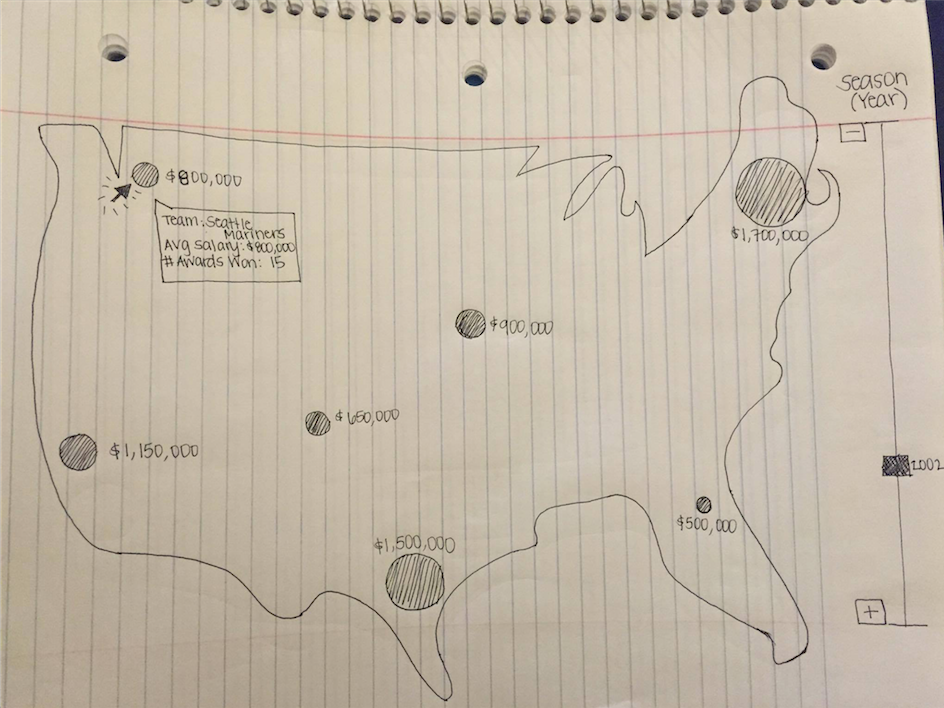 Season
(Year)
−
$800,000
Team: Seattle
Mariners
Avg Salary: $800,000
# Awards Won: 15
$1,700,000
$900,000
$650,000
$1,150,000
2002
$500,000
$1,500,000
+